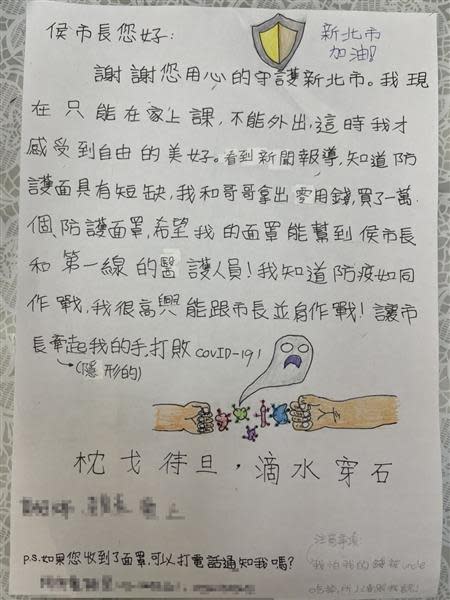 侯市長您好:
新北市
加油!
謝謝您用心的守護新北市。我現
在只能在家上課,不能外出,這時我才
感受到自由的美好。看到新聞報導,知道防
護面具有短缺,我和哥哥拿出零用錢,買了一萬
個防護面罩,希望我的面罩能幫到侯市長
和第一線的醫護人員!我知道防疫如同
作戰,我很高興能跟市長並肩作戰!讓市
長牽起我的手,打敗COVID-19!
(隱形的)
枕戈待旦,滴水穿石
上
p.s.如果您收到了面罩,可以打電話通知我嗎?
注意事項:
我怕我的錢被uncle